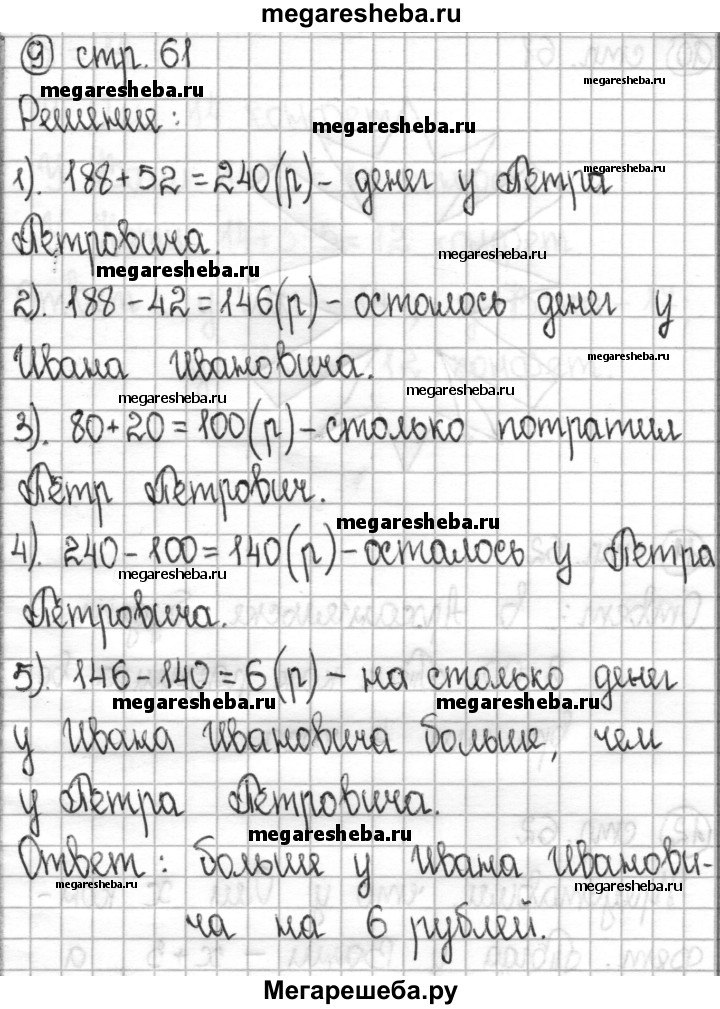 megaresheba.ru
9 стр. 61
megaresheba.ru megaresheba.ru
Решение:
megaresheba.ru
1). 188+52=240(р)- денег у Петра
megaresheba.ru
Петровича.
megaresheba.ru
megaresheba.ru
2). 188-42=146(р)-осталось денег у
Ивана Ивановича.
megaresheba.ru
megaresheba.ru
megaresheba.ru
3). 80+20=100(р)-столько потратил
Пётр Петрович.
megaresheba.ru
4). 240-100=140(р)-осталось у Петра
megaresheba.ru
Петровича.
5). 146-140=6(р)-на столько денег
megaresheba.ru megaresheba.ru
у Ивана Ивановича больше, чем
у Петра Петровича.
megaresheba.ru
Ответ: больше у Ивана Иванови-
megaresheba.ru megaresheba.ru
ча на 6 рублей.
Мегарешеба.ру